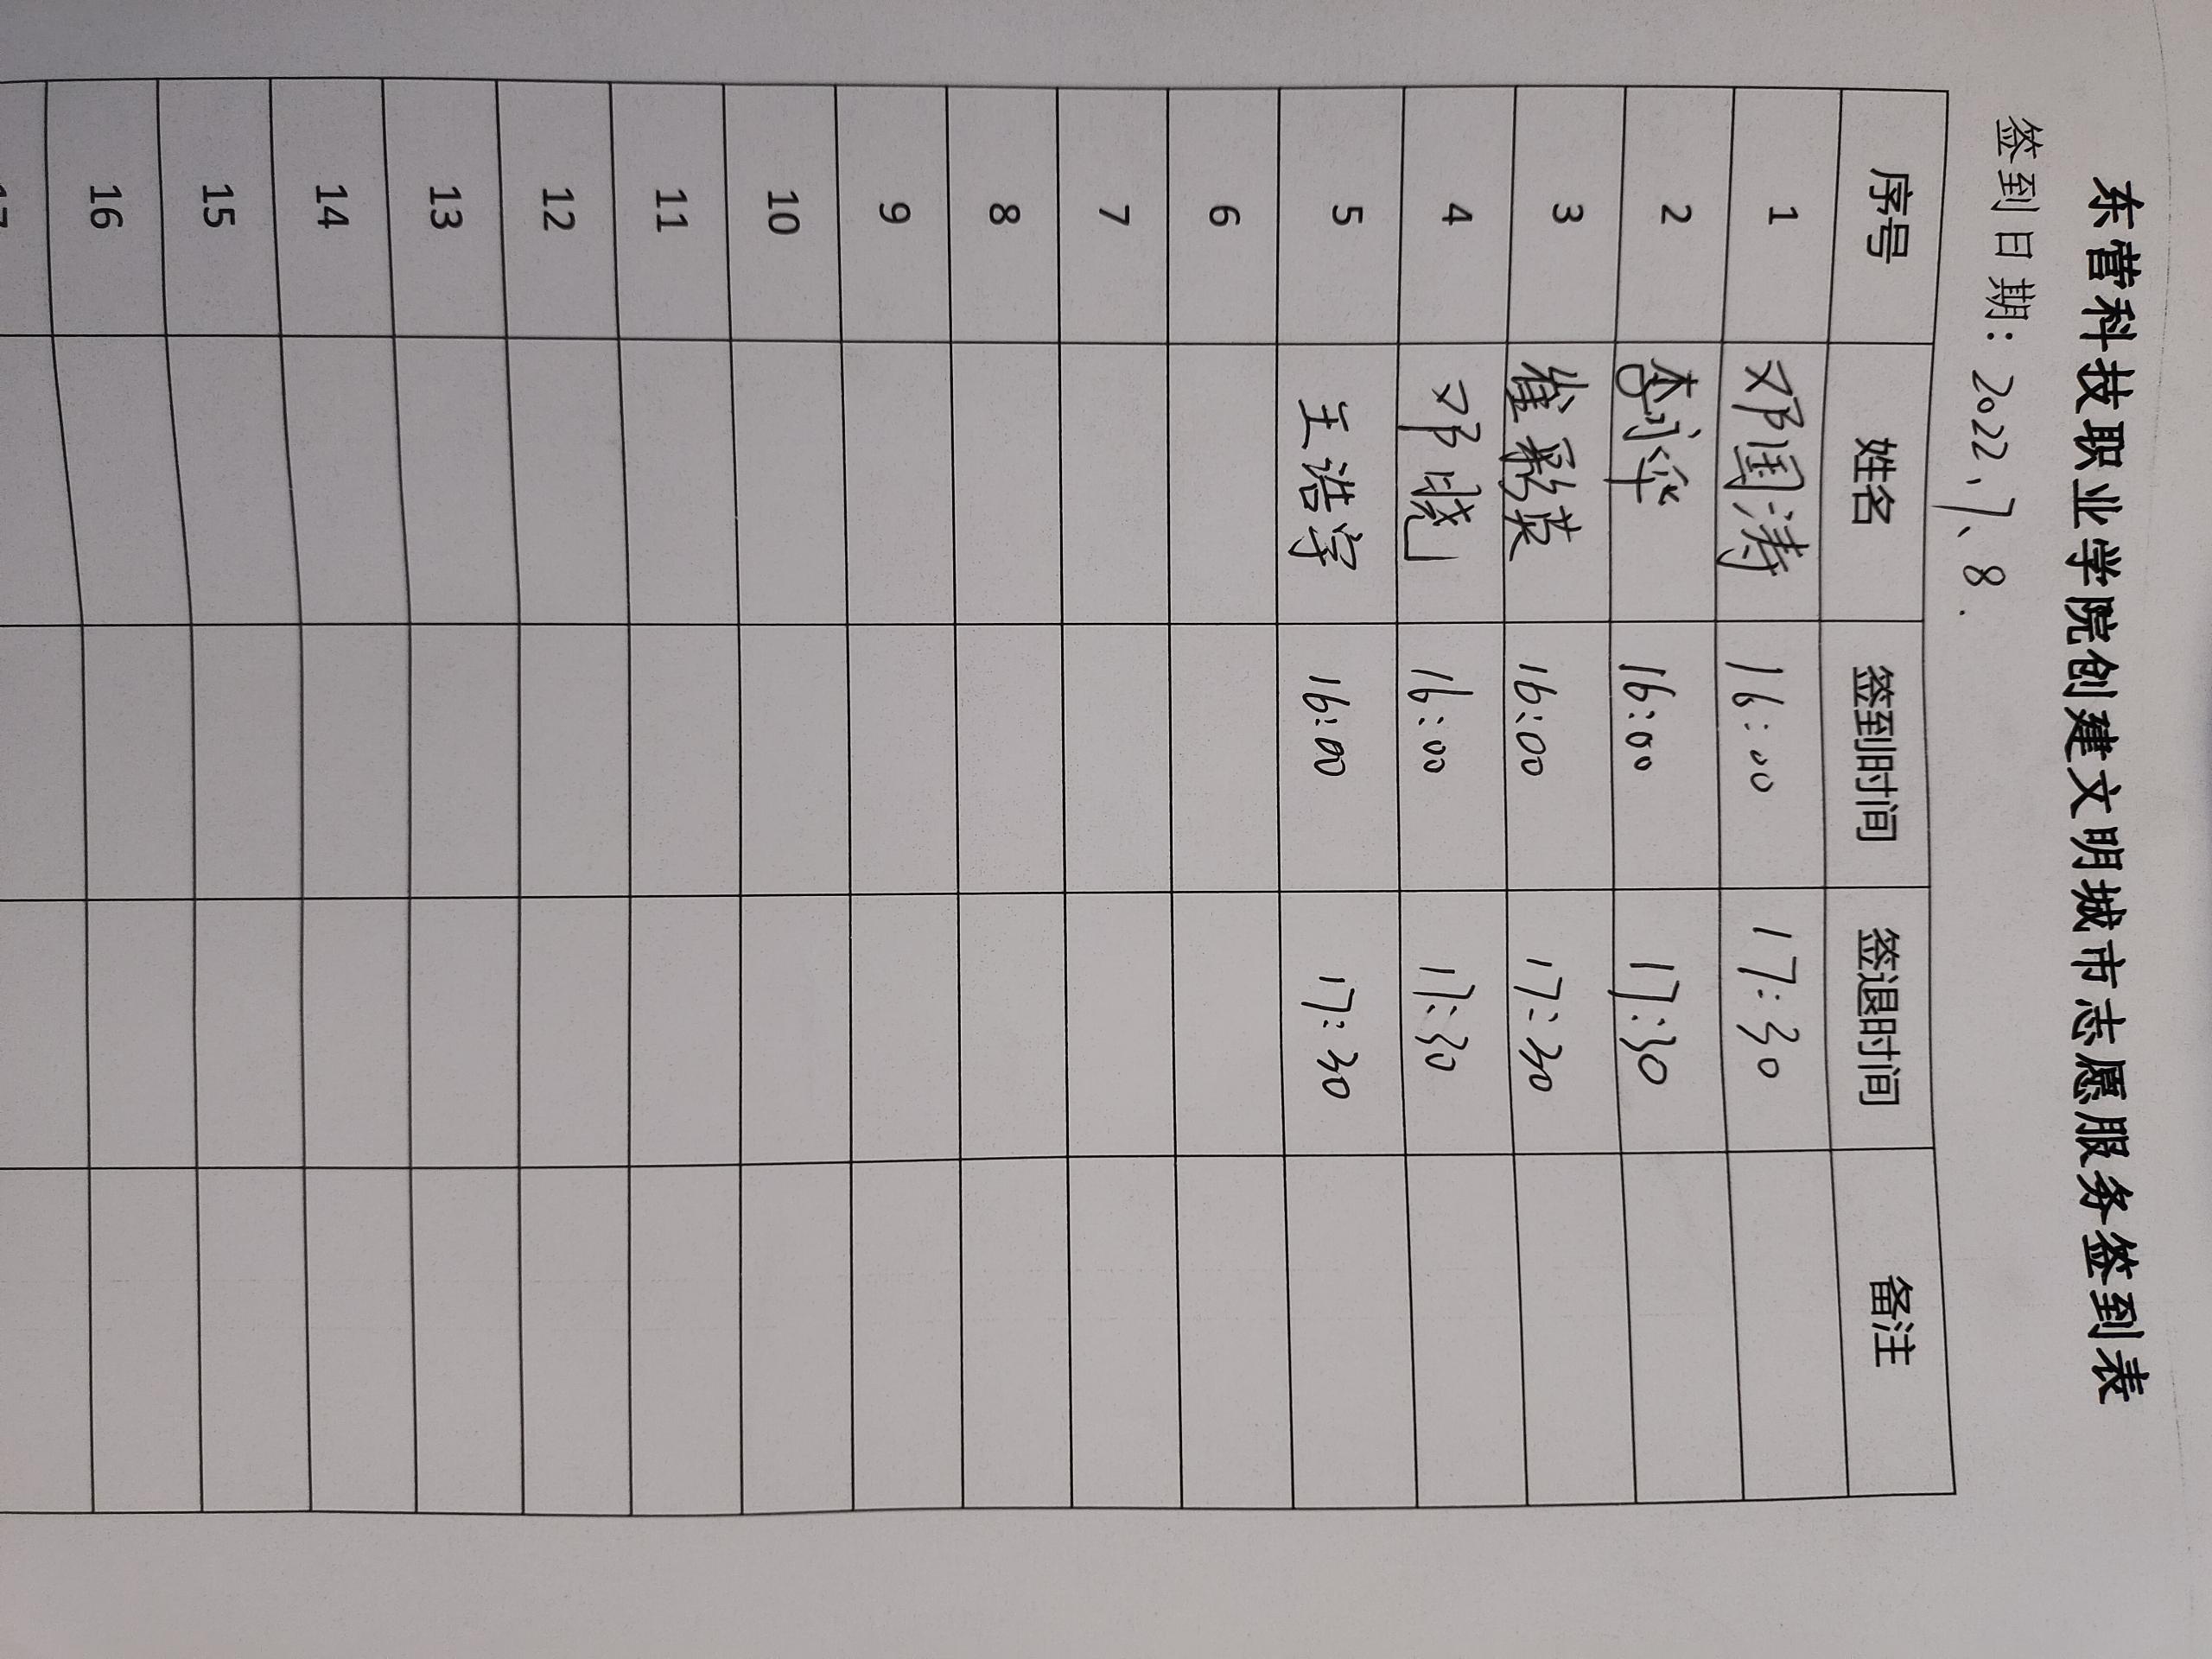 东营科技职业学院创建文明城市志愿服务签到表
签到日期：2022、7、8.
序号 姓名 签到时间 签退时间 备注
1 邓国涛 16:00 17:30
2 16:00 17:30
3 崔彩英 16:00 17:30
4 邓晓 16:00 17:30
5 王浩宇 16:00 17:30
6
7
8
9
10
11
12
13
14
15
16
17